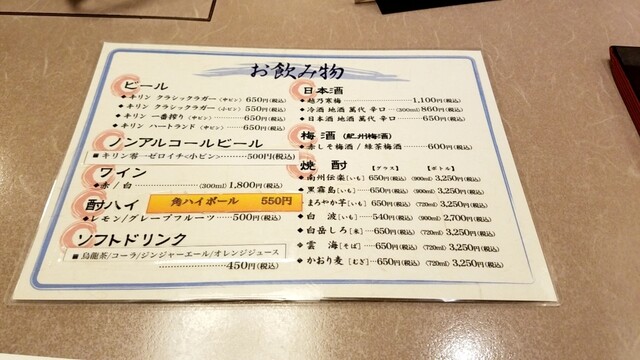 お飲み物
ビール
◆キリン クラシックラガー〈中ビン〉 650円(税込)
◆キリン クラシックラガー〈小ビン〉 550円(税込)
◆キリン 一番搾り〈中ビン〉 650円(税込)
◆キリン ハートランド〈中ビン〉 650円(税込)
ノンアルコールビール
■キリン零－ゼロイチ<小ビン> 500円(税込)
ワイン
◆赤/白 (300ml) 1,800円(税込)
角ハイボール 550円
酎ハイ
◆レモン/グレープフルーツ 500円(税込)
ソフトドリンク
■烏龍茶/コーラ/ジンジャーエール/オレンジジュース
450円(税込)
日本酒
◆越乃寒梅 1,100円(税込)
◆冷酒 地酒 萬代 辛口 (300ml) 860円(税込)
◆日本酒 地酒 萬代 辛口 650円(税込)
梅酒(紀州梅酒)
◆赤しそ梅酒/緑茶梅酒 600円(税込)
焼酎 【グラス】 【ボトル】
◆南州伝楽[いも] 650円(税込) (900ml) 3,250円(税込)
◆黒霧島[いも] 650円(税込) (900ml) 3,250円(税込)
まろやか芋[いも] 650円(税込) (720ml) 3,250円(税込)
◆白波[いも] 540円(税込) (900ml) 2,700円(税込)
◆白岳しろ[米] 650円(税込) (720ml) 3,250円(税込)
◆雲海[そば] 650円(税込) (720ml) 3,250円(税込)
◆かおり麦[むぎ] 650円(税込) (720ml) 3,250円(税込)